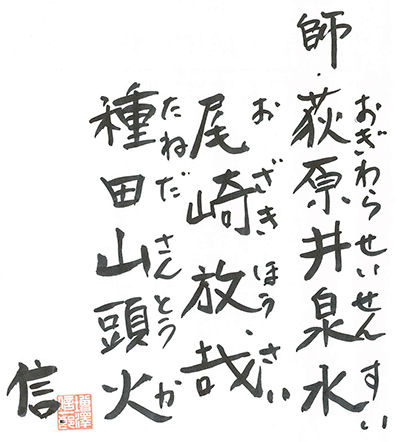 おぎわらせいせんすい
師・荻原井泉水
おざきほうさい
尾崎放哉
たねださんとうか
種田山頭火
信